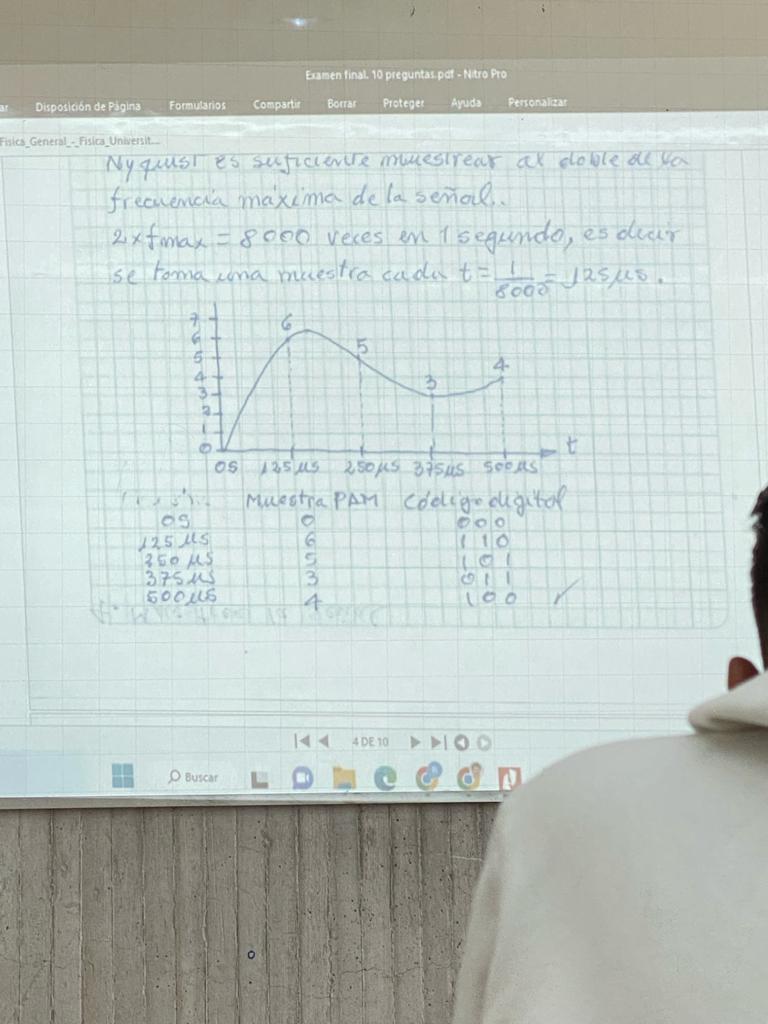 Examen final. 10 preguntas.pdf - Nitro Pro
ar Disposición de Página Formularios Compartir Borrar Proteger Ayuda Personalizar
Fisica_General_-_Fisica_Universit...
Nyquist es suficiente muestrear al doble de la
frecuencia máxima de la señal..
2xfmax = 8000 veces en 1 segundo, es decir
se toma una muestra cada t = 1/8000 = 125 μs.
7
6
5
4
3
2
1
0
6
5
3
4
t
0S 125 μs 250 μs 375 μs 500 μs
Muestra PAM Código digital
0S 0 000
125 μs 6 110
250 μs 5 101
375 μs 3 011
500 μs 4 100
4 DE 10
Buscar